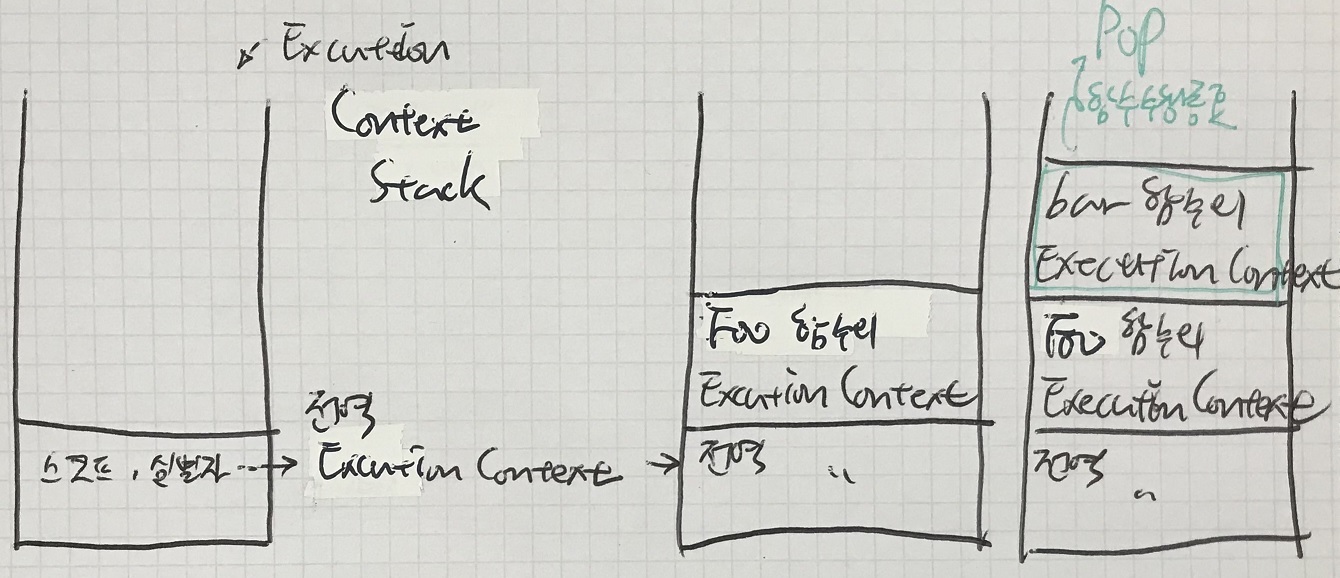 Excution
Context
Stack
스코프, 실별자 ...
전역
Excution Context
Foo 함수의
Excution Context
전역 〃
POP
함수수행종료
bar 함수의
Execution Context
Foo 함수의
Execution Context
전역
〃